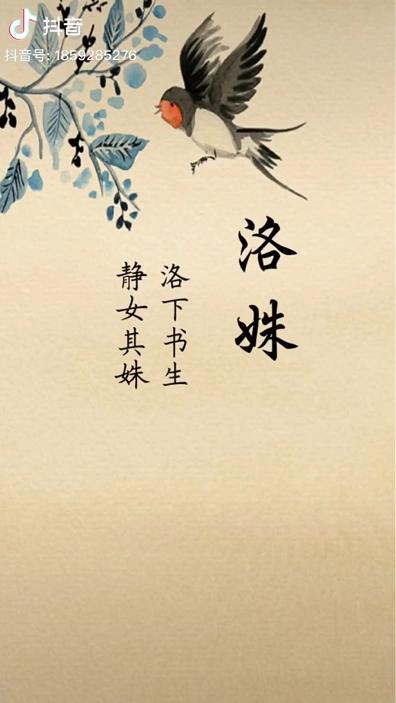 抖音
抖音号: 1859285276
洛姝
洛下书生
静女其姝